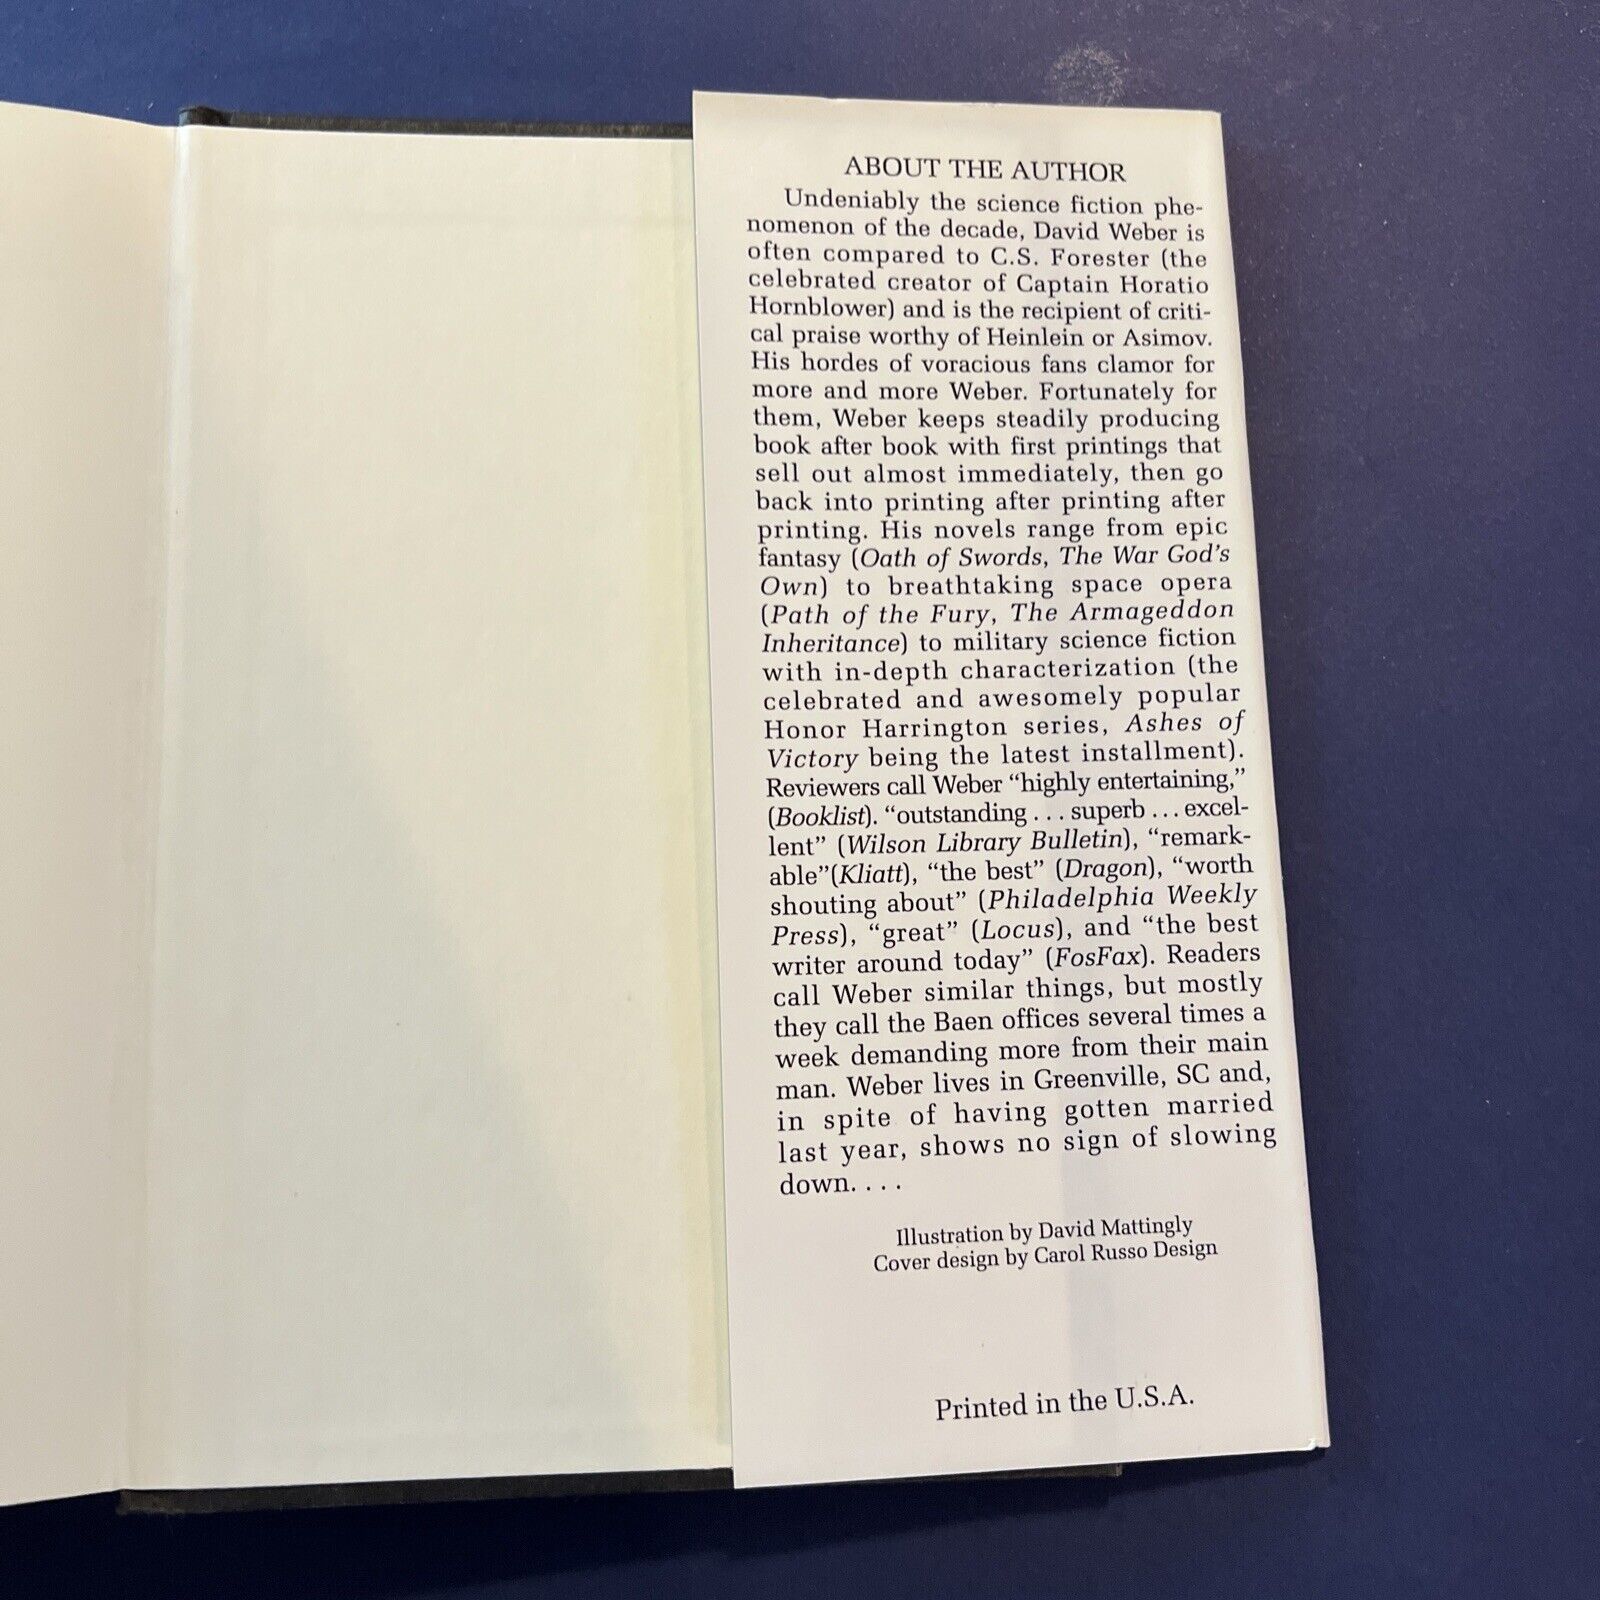 ABOUT THE AUTHOR
Undeniably the science fiction phe-
nomenon of the decade, David Weber is
often compared to C.S. Forester (the
celebrated creator of Captain Horatio
Hornblower) and is the recipient of criti-
cal praise worthy of Heinlein or Asimov.
His hordes of voracious fans clamor for
more and more Weber. Fortunately for
them, Weber keeps steadily producing
book after book with first printings that
sell out almost immediately, then go
back into printing after printing after
printing. His novels range from epic
fantasy (Oath of Swords, The War God's
Own) to breathtaking space opera
(Path of the Fury, The Armageddon
Inheritance) to military science fiction
with in-depth characterization (the
celebrated and awesomely popular
Honor Harrington series, Ashes of
Victory being the latest installment).
Reviewers call Weber “highly entertaining,”
(Booklist). “outstanding . . . superb . . . excel-
lent” (Wilson Library Bulletin), “remark-
able”(Kliatt), “the best” (Dragon), “worth
shouting about” (Philadelphia Weekly
Press), “great” (Locus), and “the best
writer around today” (FosFax). Readers
call Weber similar things, but mostly
they call the Baen offices several times a
week demanding more from their main
man. Weber lives in Greenville, SC and,
in spite of having gotten married
last year, shows no sign of slowing
down. . . .
Illustration by David Mattingly
Cover design by Carol Russo Design
Printed in the U.S.A.